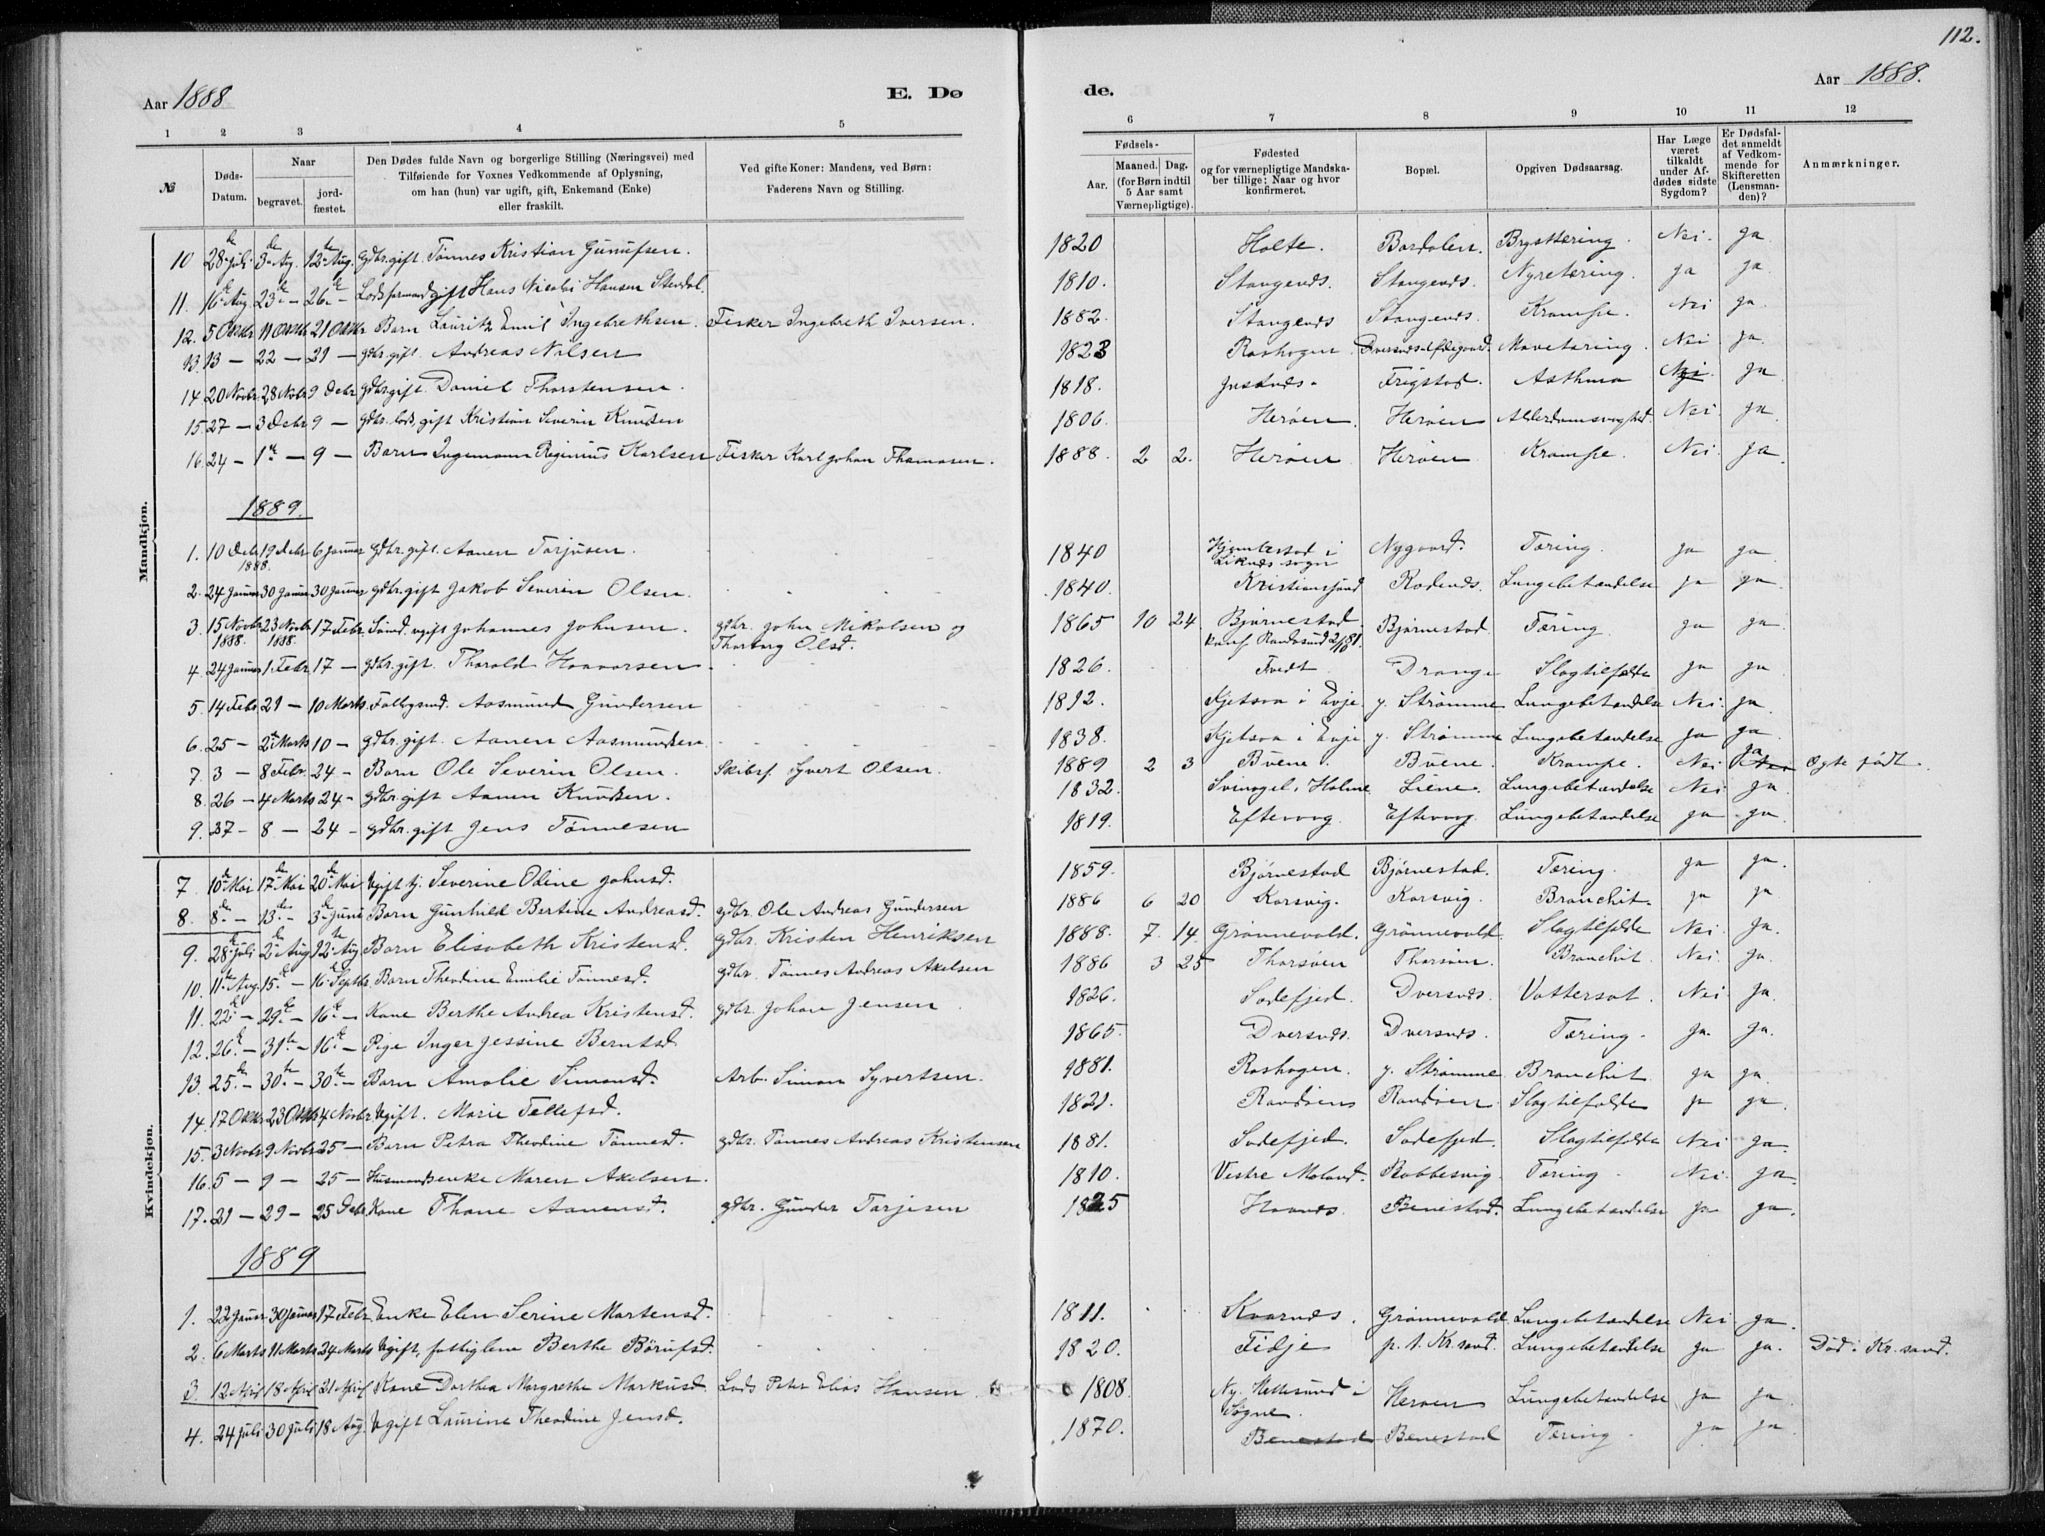 112.
Aar 1888
E. Dø
de.
Aar 1888.
1 2 3 4 5 6 7 8 9 10 11 12
№
Døds-Datum.
Naar
begravet.
jord-fæstet.
Den Dødes fulde Navn og borgerlige Stilling (Næringsvei) med
Tilføiende for Voxnes Vedkommende af Oplysning,
om han (hun) var ugift, gift, Enkemand (Enke)
eller fraskilt.
Ved gifte Koner: Mandens, ved Børn:
Faderens Navn og Stilling.
Fødsels-
Aar.
Maaned. Dag.
(for Børn indtil
5 Aar samt
Værnepligtige).
Fødested
og for værnepligtige Mandska-
ber tillige: Naar og hvor
konfirmeret.
Bopæl.
Opgiven Dødsaarsag.
Har Læge
været
tilkaldt
under Af-
dødes sidste
Sygdom?
Er Dødsfal-
det anmeldt
af Vedkom-
mende for
Skifteretten
(Lensman-
den)?
Anmærkninger.
Mandkjøn.
10 28de Juli 3de Aug. 12te Aug. gdbr. gift. Tønnes Kristian Gunufsen. 1820 Holte. Bordalen Brysttæring. Nei. Ja
11. 16de Aug. 23de – 26de – Lodsformand gift Hans Nicolai Hansen Stendal. 1810. Stangenes. Stangenes. Nyretæring. Ja Ja
12. 5 Oktbr 11 Oktbr 21 Oktbr Barn Lauritz Emil Ingebrethsen. Fisker Ingebreth Iversen. 1882. Stangenes Stangenes. Krampe. Nei Ja.
13. 13 – 22 – 21 – gdbr. gift. Andreas Nilsen 1823 Roshogen. Mavetæring. Nei Ja.
14 20 Novbr. 28 Novbr 9 Debr gdbr gift. Daniel Thorstensen. 1818. Justnes. Frigstad. Asthma Nei. Ja
15. 27 – 3 Debr 9 – gdbr. lods, gift Kristian Severin Knudsen 1806. Herøen. Herøen Alderdomssvaghed. Nei Ja.
16. 24 – 1te – 9 – Barn Ingemann Reginius Karlsen Fisker Karl Johan Thomasen. 1888. 2 2. Herøen Herøen Krampe. Nei Ja.
1889.
1. 10 Debr 1888. 19 Debr 6 Januar gdbr. gift. Aanen Torjusen. 1840 i Liknes sogn Nygaard. Tæring. Ja Ja
2. 24 Januar 30 Januar 30 Januar gdbr. gift Jakob Severin Olsen. 1840. Kristiansand Rodenes. Lungebetændelse Ja Ja.
3. 15 Novbr 1888. 23 Novbr 1888. 17 Febr. Sømd. ugift Johannes Johnsen. gdbr. John Mikalsen og Thorborg Olsd. 1865 10 24. Bjørnestad. konf. Randøsund 2/10 81. Bjørnestad Tæring. Ja Ja.
4. 24 Januar 1. Febr. 17 – gdbr. gift. Thorald Haavorsen 1826. Tvedt Drange Slagtilfælde Ja Ja
5. 14 Febr 21 – 10 Marts Fattiglmd. Aasmund Gundersen 1812. Kjetsaa i Evje. y. Strømme. Lungebetændelse Nei. Ja.
6. 25 – 2den Marts 10 – gdbr. gift. Aanen Aasmundsen 1838. Kjetsaa i Evje y. Strømme Lungebetændelse Ja Ja.
7. 3 – 8 Febr. 24 – Barn Ole Severin Olsen. Skibsf. Syvert Olsen. 1889 2 3 Buene. Buene. Krampe. Nei Ja Ægte født.
8. 26 – 4 Marts 24 – gdbr. gift Aanen Knudsen. 1832. Svinogel i Holme Liene. Lungebetændelse Nei. Ja.
9. 27 – 8 – 24 – gdbr. gift Jens Tønnesen 1819. Eftevaag. Eftevaag. Lungebetændelse Ja Ja.
Kvindekjøn.
7. 10de Mai 17de Mai 20de Mai Ugift tj. Severine Odine Johnsd. 1859. Bjørnestad Bjørnestad. Tæring. Ja Ja.
8. 8de – 13de – 3de Juni Barn Gunhild Bertine Andreasd. gdbr. Ole Andreas Gundersen 1886 6 20 Korsvig. Korsvig. Bronchit. Ja Ja
9. 28de Juli 2de Aug 12te Aug Barn Elisabeth Kristensd. gdbr. Kristen Henriksen 1888. 7. 14. Grønnevold. Grønnevold. Slagtilfælde Nei. Ja.
10. 11te Aug. 15de – 16de Septbr. Barn Theodine Emilie Tønnesd. gdbr. Tønnes Andreas Akelsen 1886 3 25 Thorsøen Thorsøen. Bronchit. Nei. Ja.
11. 22de – 29de – 16de – Kone Berthe Andrea Kristensd. gdbr. Johan Jensen 1826. Sodefjed. Dversnes. Vattersot. Nei Ja.
12. 26de – 31te – 16de – Pige Inger Jessine Berntsd. 1865. Dversnes. Dversnes. Tæring. Ja. Ja.
13. 25. – 30te – 30te – Barn Amalie Simonsd. Arb. Simon Syvertsen. 1881. Roshogen. y. Strømme Bronchit. Ja Ja.
14. 17 Oktbr 23 Oktbr 4 Novbr Ugift. Marie Tellefsd. 1821. Randøens Randøen. Slagtilfælde Ja Ja.
15. 3 Novbr 9 Novbr 25 – Barn Petra Theodine Tønnesd. gdbr. Tønnes Andreas Kristensen 1881. Sodefjed. Sodefjed. Slagtilfælde Nei Ja.
16. 5 – 9 – 25 – Husmandsenke Maren Akelsen. 1810. Vestre Moland. Kobbesvig. Tæring. Nei. Ja.
17. 21 – 29 – 25 Debr. Kone Thone Aanensd. gdbr. Gunder Torjesen 1825 Haanes. Benestad. Lungebetændelse Ja Ja.
1889
1. 22 Januar 30 Januar 17 Febr Enke Elen Serine Mortensd. 1811. Kvarnes. Grønnevold. Lungebetændelse Nei. Ja.
2. 6 Marts 11 Marts 24 Marts Ugift, fattiglem Berthe Børufsd. 1820. Tidje p. t. Kr. sand. Lungebetændelse Ja Ja. Død i Kr. sand.
3. 12 April 18 April 21 April Kone Dorthea Margrethe Markusd. Lods Peter Elias Hansen 1808. Ny. Hellesund i Søgne. Herøen Lungebetændelse Ja Ja
4. 24 Juli 30 Juli 18 Aug. Ugift Laurine Theodine Jensd. 1870. Benestad Benestad Tæring. Ja Ja